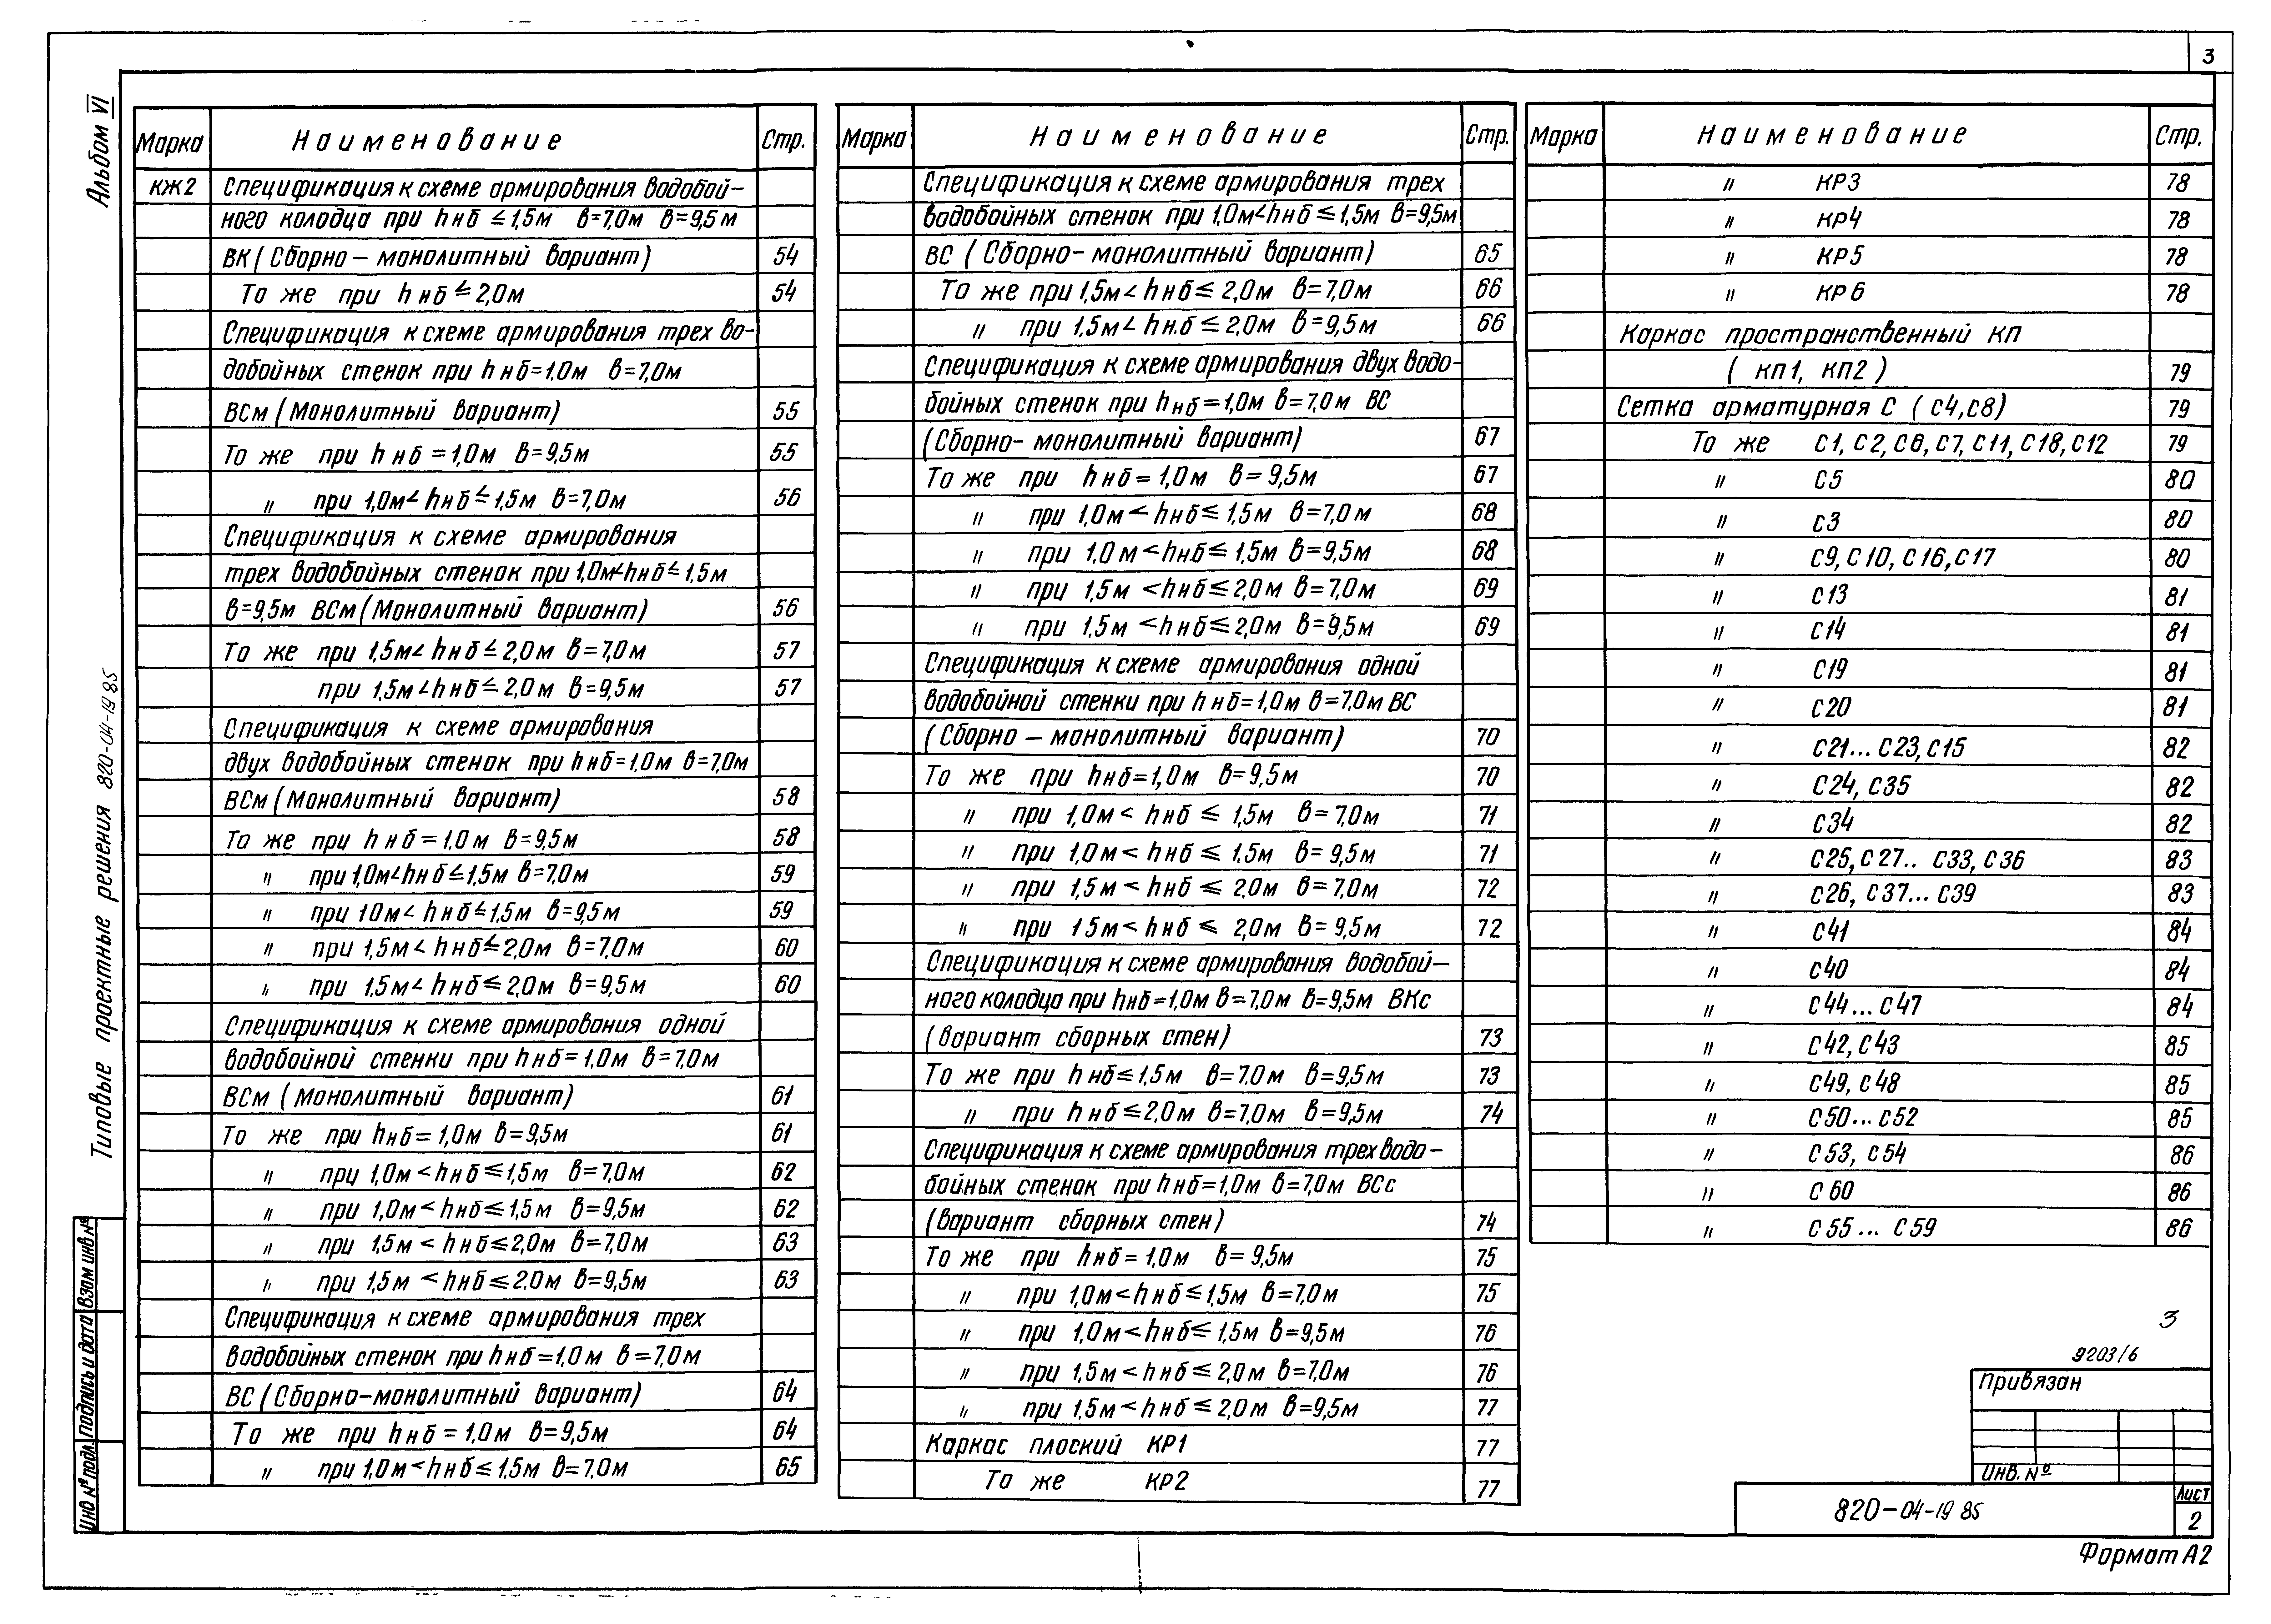 3
Альбом VI
Типовые проектные решения 820-04-19 85
Марка Наименование Стр.
КЖ2 Спецификация к схеме армирования водобой-
ного колодца при hнб ≤ 1,5м в=7,0м в=9,5м
ВК (Сборно-монолитный вариант) 54
То же при hнб ≤ 2,0м 54
Спецификация к схеме армирования трех во-
добойных стенок при hнб=1,0м в=7,0м
ВСм (Монолитный вариант) 55
То же при hнб = 1,0м в=9,5м 55
" при 1,0м< hнб ≤ 1,5м в=7,0м 56
Спецификация к схеме армирования
трех водобойных стенок при 1,0м<hнб ≤ 1,5м
в=9,5м ВСм (Монолитный вариант) 56
То же при 1,5м< hнб ≤ 2,0м в=7,0м 57
при 1,5м<hнб ≤ 2,0м в=9,5м 57
Спецификация к схеме армирования
двух водобойных стенок при hнб=1,0м в=7,0м
ВСм (Монолитный вариант) 58
То же при hнб = 1,0м в=9,5м 58
" при 1,0м<hнб ≤ 1,5м в=7,0м 59
" при 10м< hнб ≤ 1,5м в=9,5м 59
" при 1,5м< hнб ≤ 2,0м в=7,0м 60
" при 1,5м< hнб ≤ 2,0м в=9,5м 60
Спецификация к схеме армирования одной
водобойной стенки при hнб = 1,0м в=7,0м
ВСм (Монолитный вариант) 61
То же при hнб= 1,0м в=9,5м 61
" при 1,0м < hнб ≤ 1,5м в=7,0м 62
" при 1,0м < hнб ≤ 1,5м в=9,5м 62
" при 1,5м < hнб ≤ 2,0м в=7,0м 63
" при 1,5м < hнб ≤ 2,0м в=9,5м 63
Спецификация к схеме армирования трех
водобойных стенок при hнб=1,0м в=7,0м
ВС (Сборно-монолитный вариант) 64
То же при hнб = 1,0м в=9,5м 64
" при 1,0м < hнб ≤ 1,5м в=7,0м 65
Марка Наименование Стр.
Спецификация к схеме армирования трех
водобойных стенок при 1,0м<hнб ≤ 1,5м в=9,5м
ВС (Сборно-монолитный вариант) 65
То же при 1,5м< hнб ≤ 2,0м в=7,0м 66
" при 1,5м< hн.б ≤ 2,0м в=9,5м 66
Спецификация к схеме армирования двух водо-
бойных стенок при hнб = 1,0м в=7,0м ВС
(Сборно-монолитный вариант) 67
То же при hнб = 1,0м в= 9,5м 67
" при 1,0м < hнб ≤ 1,5м в=7,0м 68
" при 1,0 м < hн.б ≤ 1,5м в=9,5м 68
" при 1,5м < hнб ≤ 2,0м в=7,0м 69
" при 1,5м < hнб ≤ 2,0м в=9,5м 69
Спецификация к схеме армирования одной
водобойной стенки при hнб=1,0м в=7,0м ВС
(Сборно-монолитный вариант) 70
То же при hнб=1,0м в=9,5м 70
" при 1,0м < hнб ≤ 1,5м в=7,0м 71
" при 1,0м < hнб ≤ 1.5м в= 9,5м 71
" при 1,5м < hнб ≤ 2,0м в=7,0м 72
" при 1 5м < hнб ≤ 2,0м в= 9,5м 72
Спецификация к схеме армирования водобой-
ного колодца при hнб=1,0м в=7,0м в=9,5м ВКс
(вариант сборных стен) 73
То же при hнб ≤ 1,5м в=7,0м в=9,5м 73
" при hнб ≤ 2,0м в=7,0м в=9,5м 74
Спецификация к схеме армирования трех водо-
бойных стенок при hнб=1,0м в=7,0м ВСс
(вариант сборных стен) 74
То же при hнб= 1,0м в= 9,5м 75
" при 1,0м < hнб ≤ 1,5м в=7,0м 75
" при 1,0м < hнб ≤ 1,5м в=9,5м 76
" при 1,5м < hнб ≤ 2,0м в=7,0м 76
" при 1,5м < hнб ≤ 2,0м в=9,5м 77
Каркас плоский КР1 77
То же КР2 77
Марка Наименование Стр.
" КР3 78
" КР4 78
" КР5 78
" КР6 78
Каркас пространственный КП
( КП1, КП2 ) 79
Сетка арматурная С ( С4,С8) 79
То же С1, С2, С6, С7, С11, С18, С12 79
" С5 80
" С3 80
" С9, С10, С16, С17 80
" С13 81
" С14 81
" С19 81
" С20 81
" С21... С23, С15 82
" С24, С35 82
" С34 82
" С25, С27.. С33, С36 83
" С26, С37... С39 83
" С41 84
" С40 84
" С44... С47 84
" С42, С43 85
" С49, С48 85
" С50... С52 85
" С53, С54 86
" С60 86
" С55... С59 86
3
9203/6
Привязан
Инв. №
820-04-19 85
Лист
2
Формат А2
Инв № подл. Подпись и дата Взам инв №